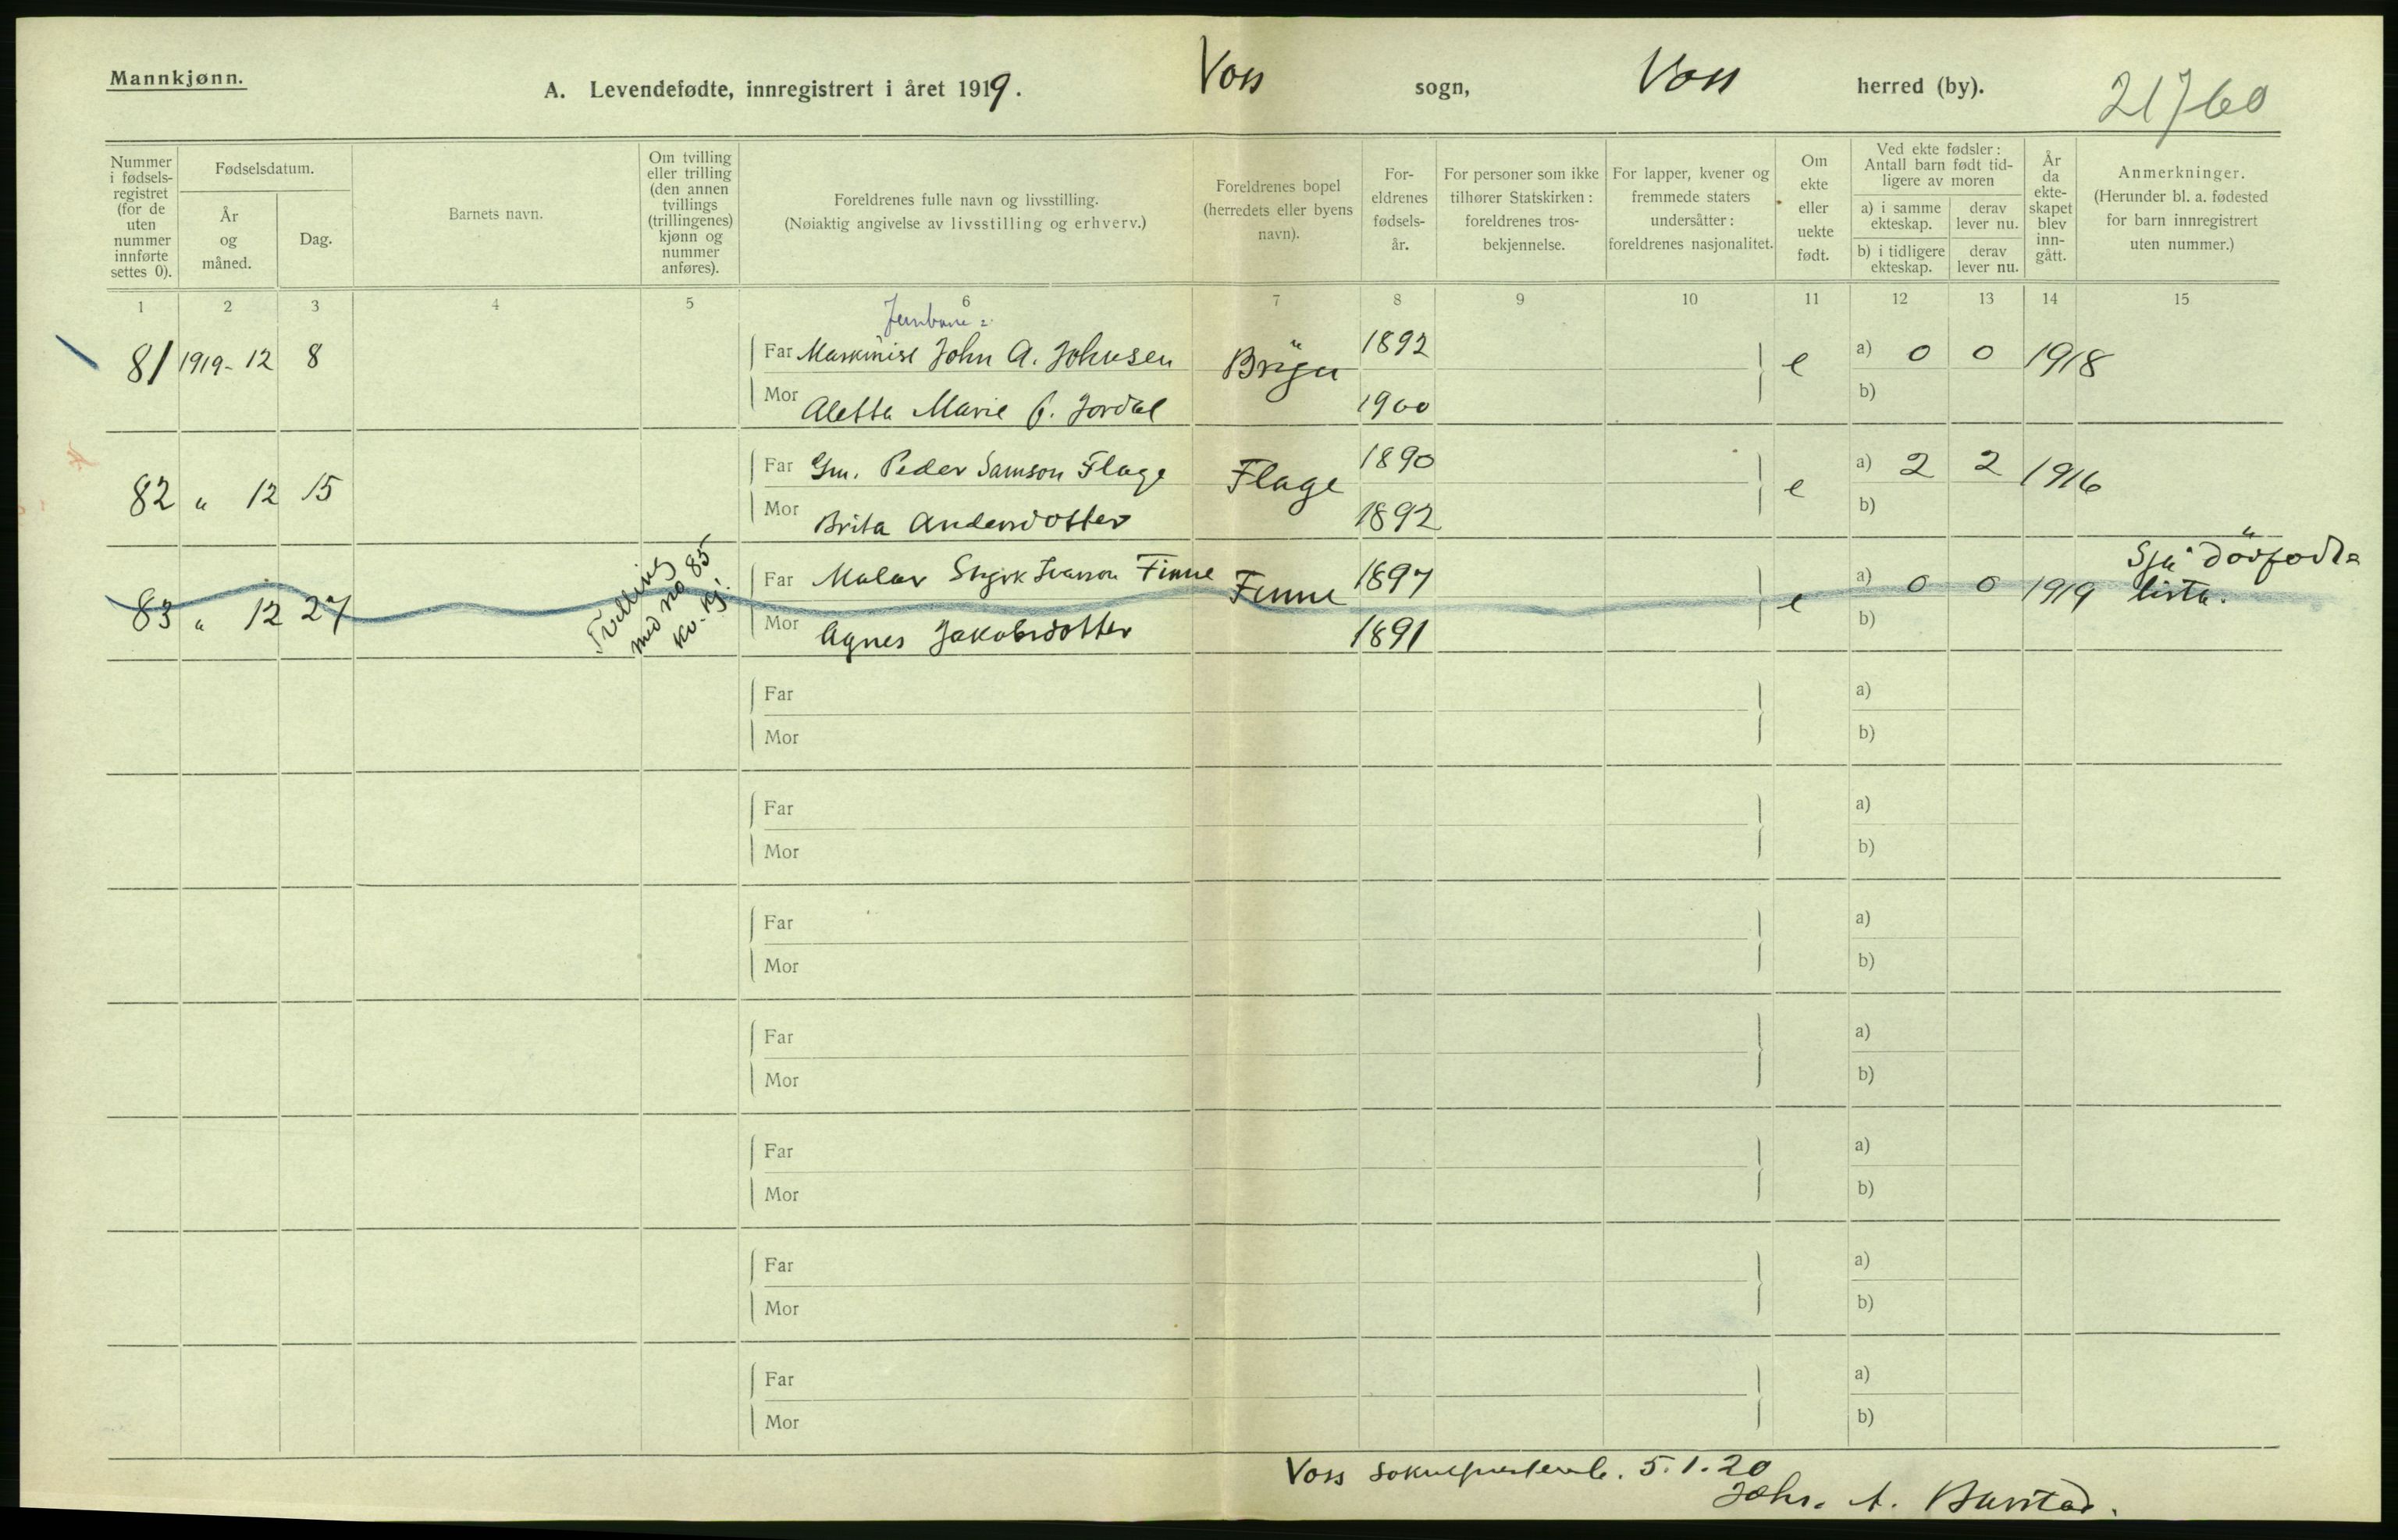 Mannkjønn.
A. Levendefødte, innregistrert i året 1919. Voss sogn, Voss herred (by).
21760
Nummer i fødselsregistret (for de uten nummer innførte settes 0).
Fødselsdatum.
År og måned.
Dag.
Barnets navn.
Om tvilling eller trilling (den annen tvillings (trillingenes) kjønn og nummer anføres).
Foreldrenes fulle navn og livsstilling.
(Nøiaktig angivelse av livsstilling og erhverv.)
Foreldrenes bopel (herredets eller byens navn).
Foreldrenes fødselsår.
For personer som ikke tilhører Statskirken: foreldrenes trosbekjennelse.
For lapper, kvener og fremmede staters undersåtter: foreldrenes nasjonalitet.
Om ekte eller uekte født.
Ved ekte fødsler: Antall barn født tidligere av moren
a) i samme ekteskap.
derav lever nu.
b) i tidligere ekteskap.
derav lever nu.
År da ekteskapet blev inngått.
Anmerkninger.
(Herunder bl. a. fødested for barn innregistrert uten nummer.)
1 2 3 4 5 6 7 8 9 10 11 12 13 14 15
Jernbane=
81 1919-12 8 Far Maskinist John A. Johnsen 1892 e a) 0 0 1918
Mor Aletta Marie Jordal 1900 b)
82 " 12 15 Far Gm. Peder Samson Flage Flage 1890 e a) 2 2 1916
Mor Brita Andersdotter 1892 b)
83 " 12 27 Tvilling med no 85 kv. kj. Far Malar Ivarson Finne Finne 1897 e a) 0 0 1919 Sjå dödfødte lista.
Mor Agnes Jakobsdotter 1891 b)
Far a)
Mor b)
Far a)
Mor b)
Far a)
Mor b)
Far a)
Mor b)
Far a)
Mor b)
Far a)
Mor b)
Far a)
Mor b)
Voss 5.1.20
Johs. A.